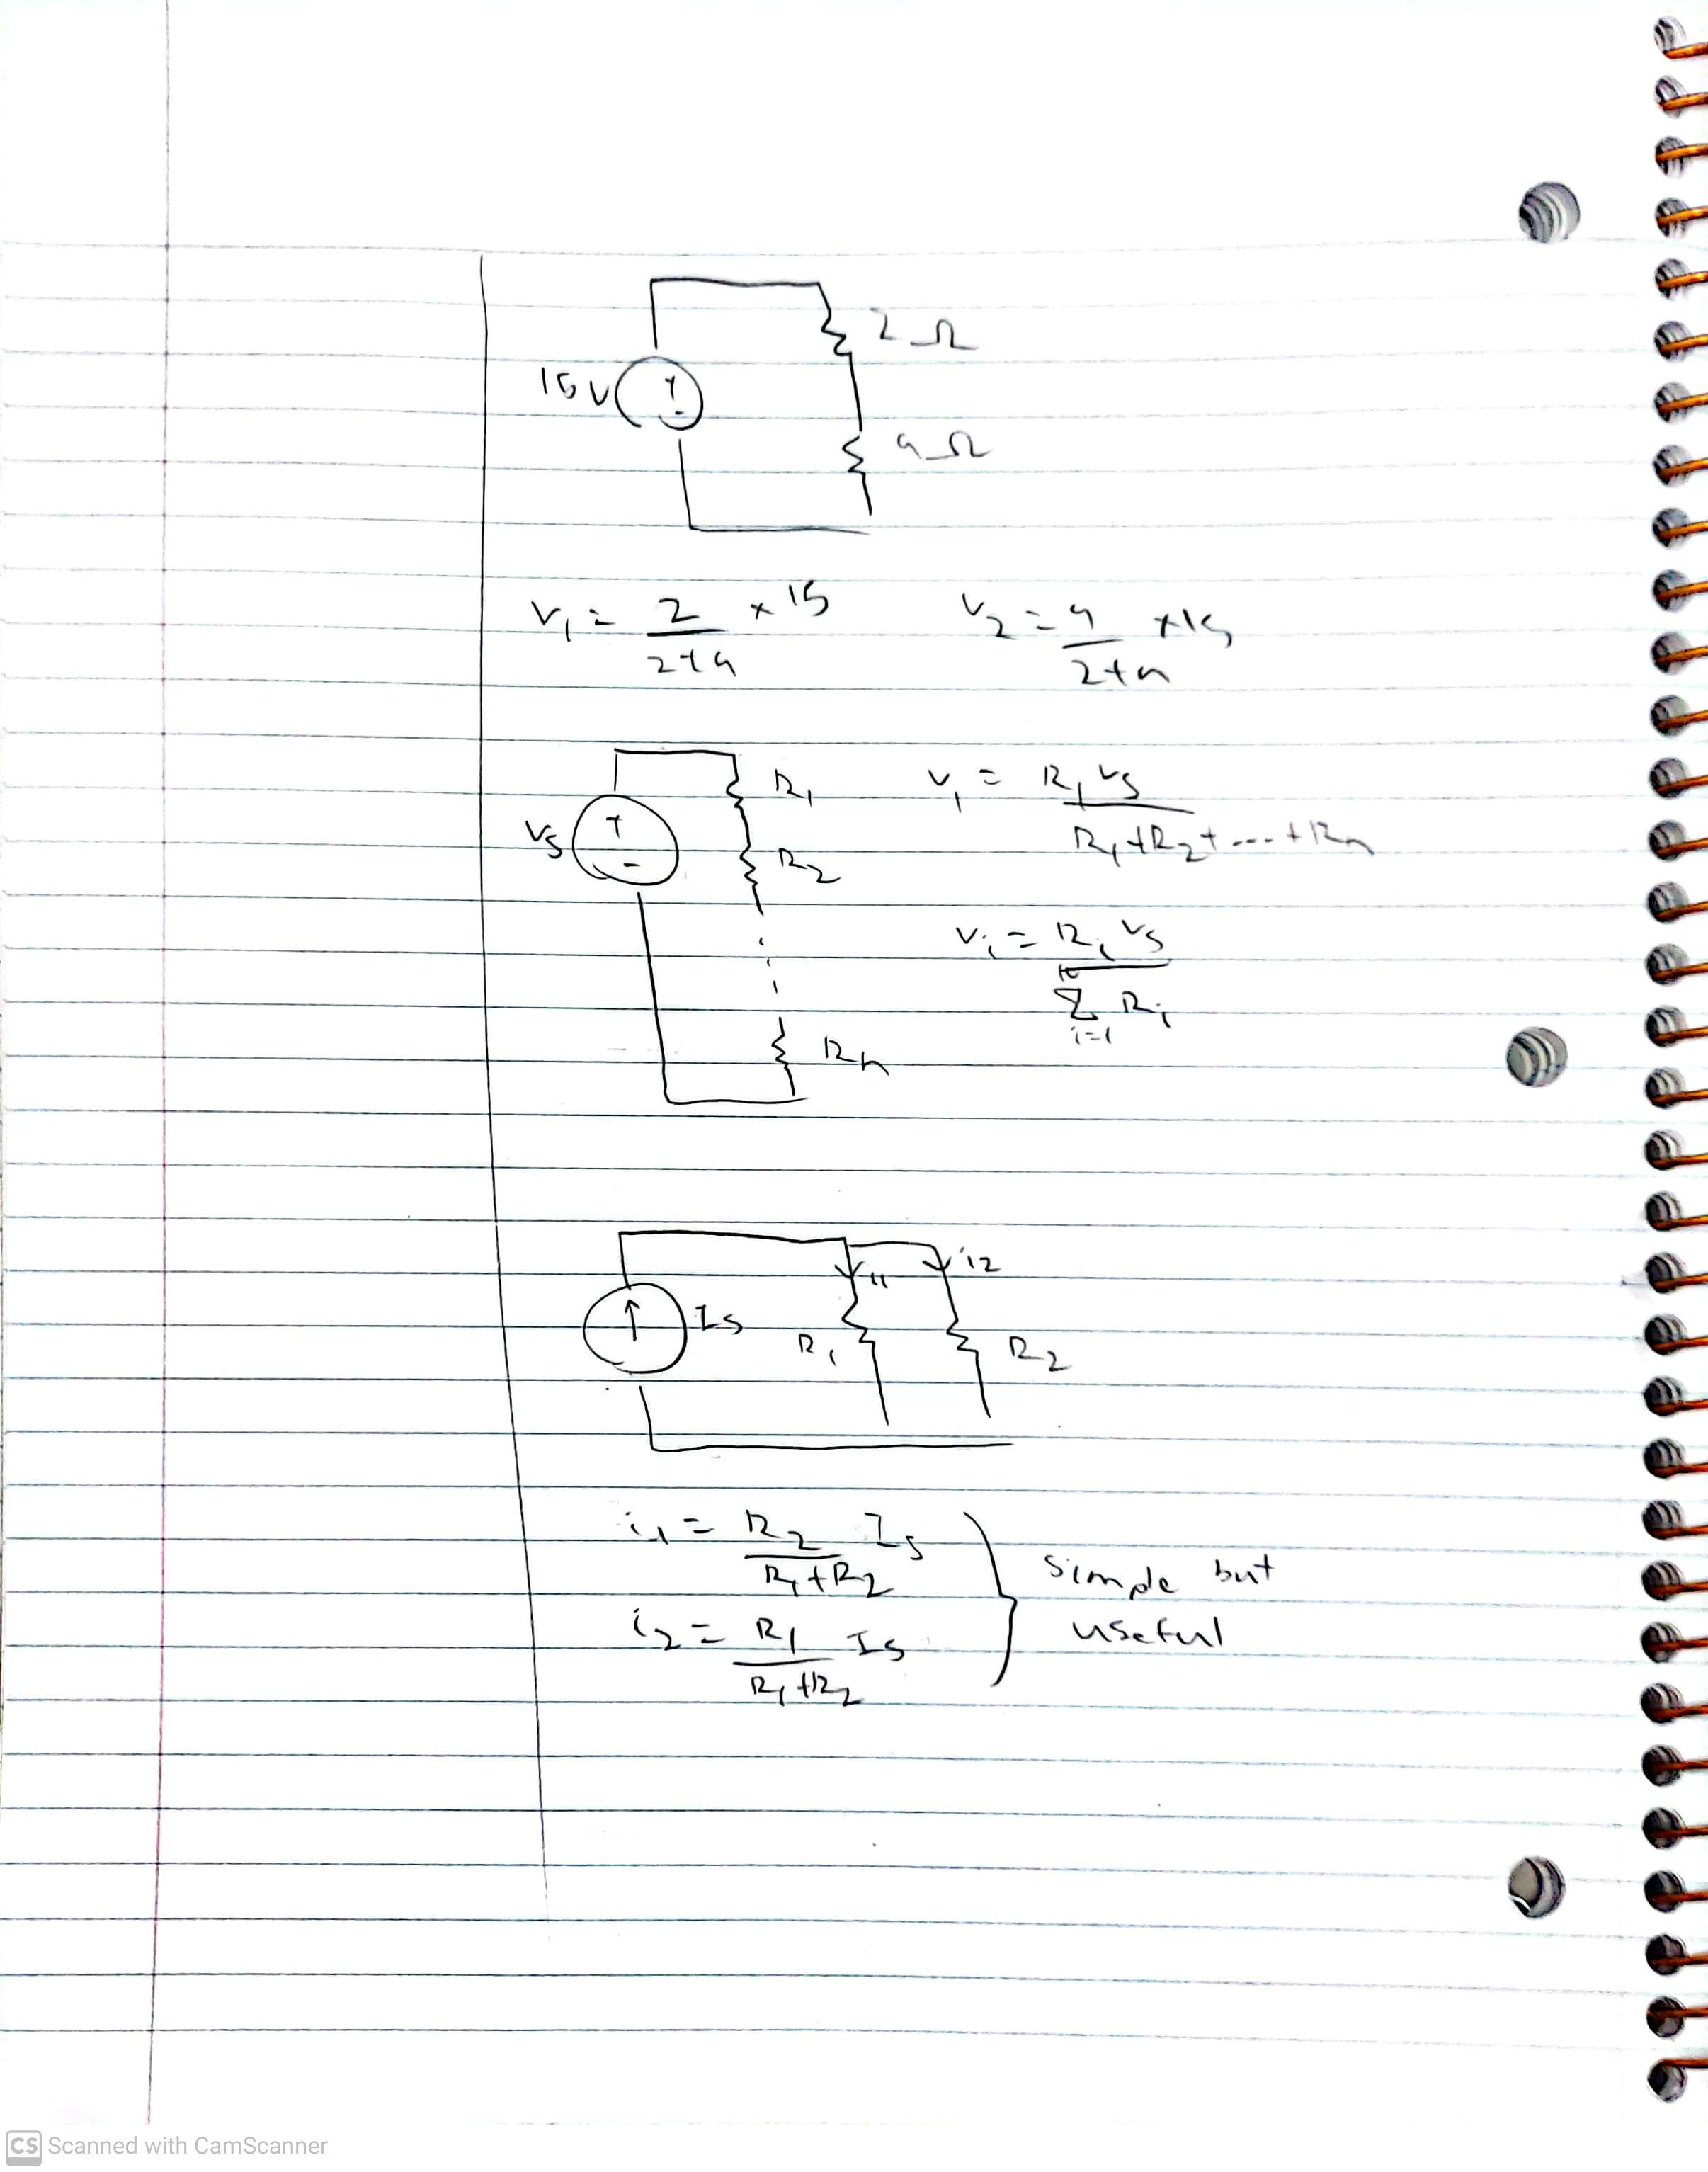 2 Ω
15 V
+
-
4 Ω
V₁ = 2/(2+4) × 15    V₂ = 4/(2+4) × 15
R₁    V₁ = R₁ Vs/(R₁+R₂+...+Rn)
Vs
+
-
R₂
Vᵢ = Rᵢ Vs/(Σ i=1 Rᵢ)
Rn
i₁    i2
Is
R₁    R₂
i₁ = R₂/(R₁+R₂) Is
i₂ = R₁/(R₁+R₂) Is
simple but
useful
CS Scanned with CamScanner